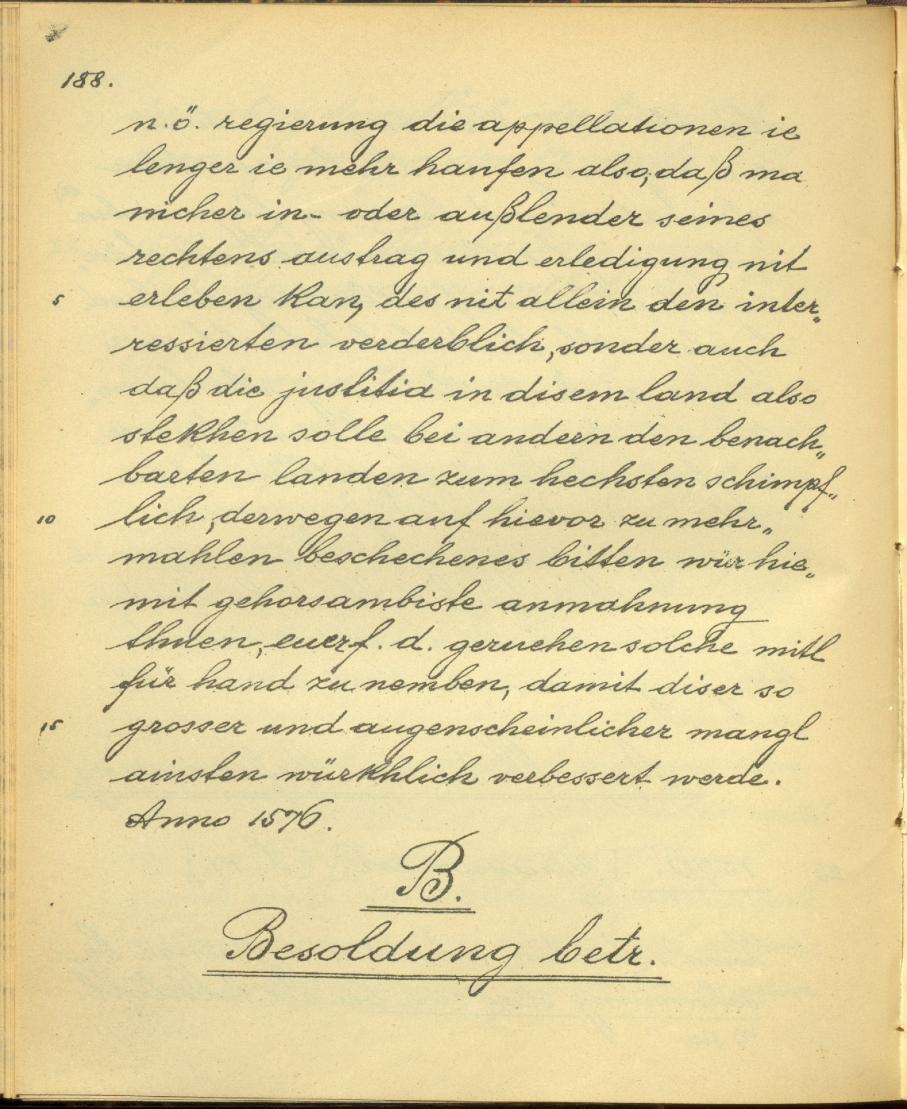 188.
n. ö. regierung die appellationen ie
lenger ie mehr haufen also, daß ma
nicher in- oder außlender seines
rechtens austrag und erledigung nit
5 erleben kan, des nit allein den inter„
ressierten verderblich, sonder auch
daß die justitia in disem land also
stekhen solle bei andern den benach„
barten landen zum hechsten schimpf„
10 lich, derwegen auf hievor zu mehr„
mahlen beschechenes bitten wür hie„
mit gehorsambiste anmahnung
thuen, euer f. d. geruehen solche mitl
für hand zu nemben, damit diser so
15 grosser und augenscheinlicher mangl
ainsten würkhlich verbessert werde.
Anno 1576.
B.
Besoldung betr.